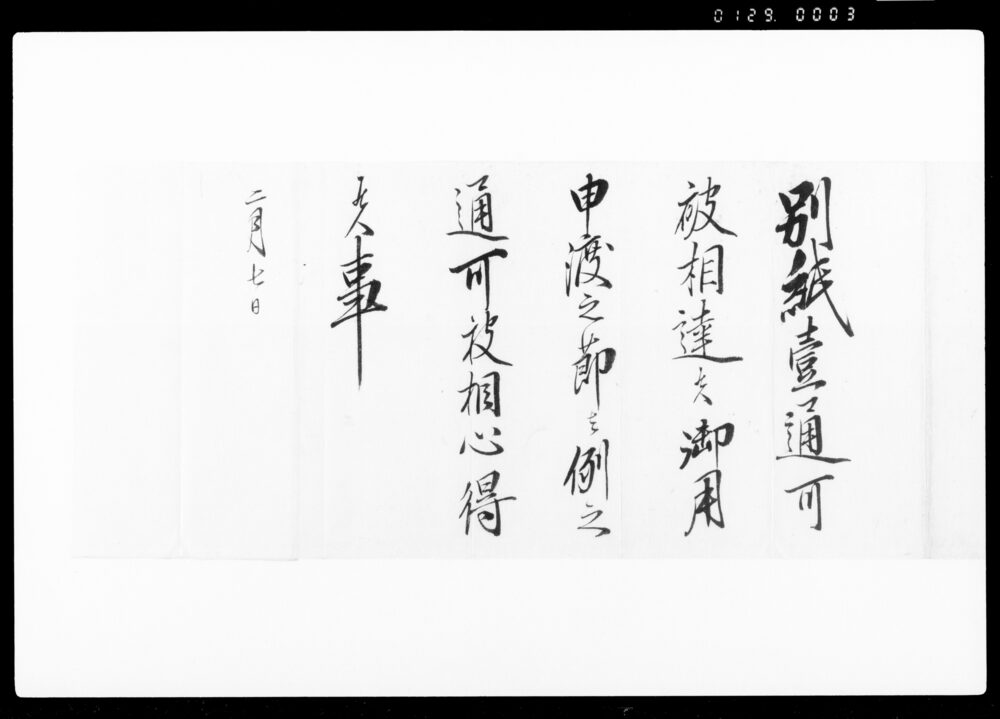 0129. 0003
別紙壹通可
被相達候御用
申渡之節者例之
通可被相心得
候事
二月七日